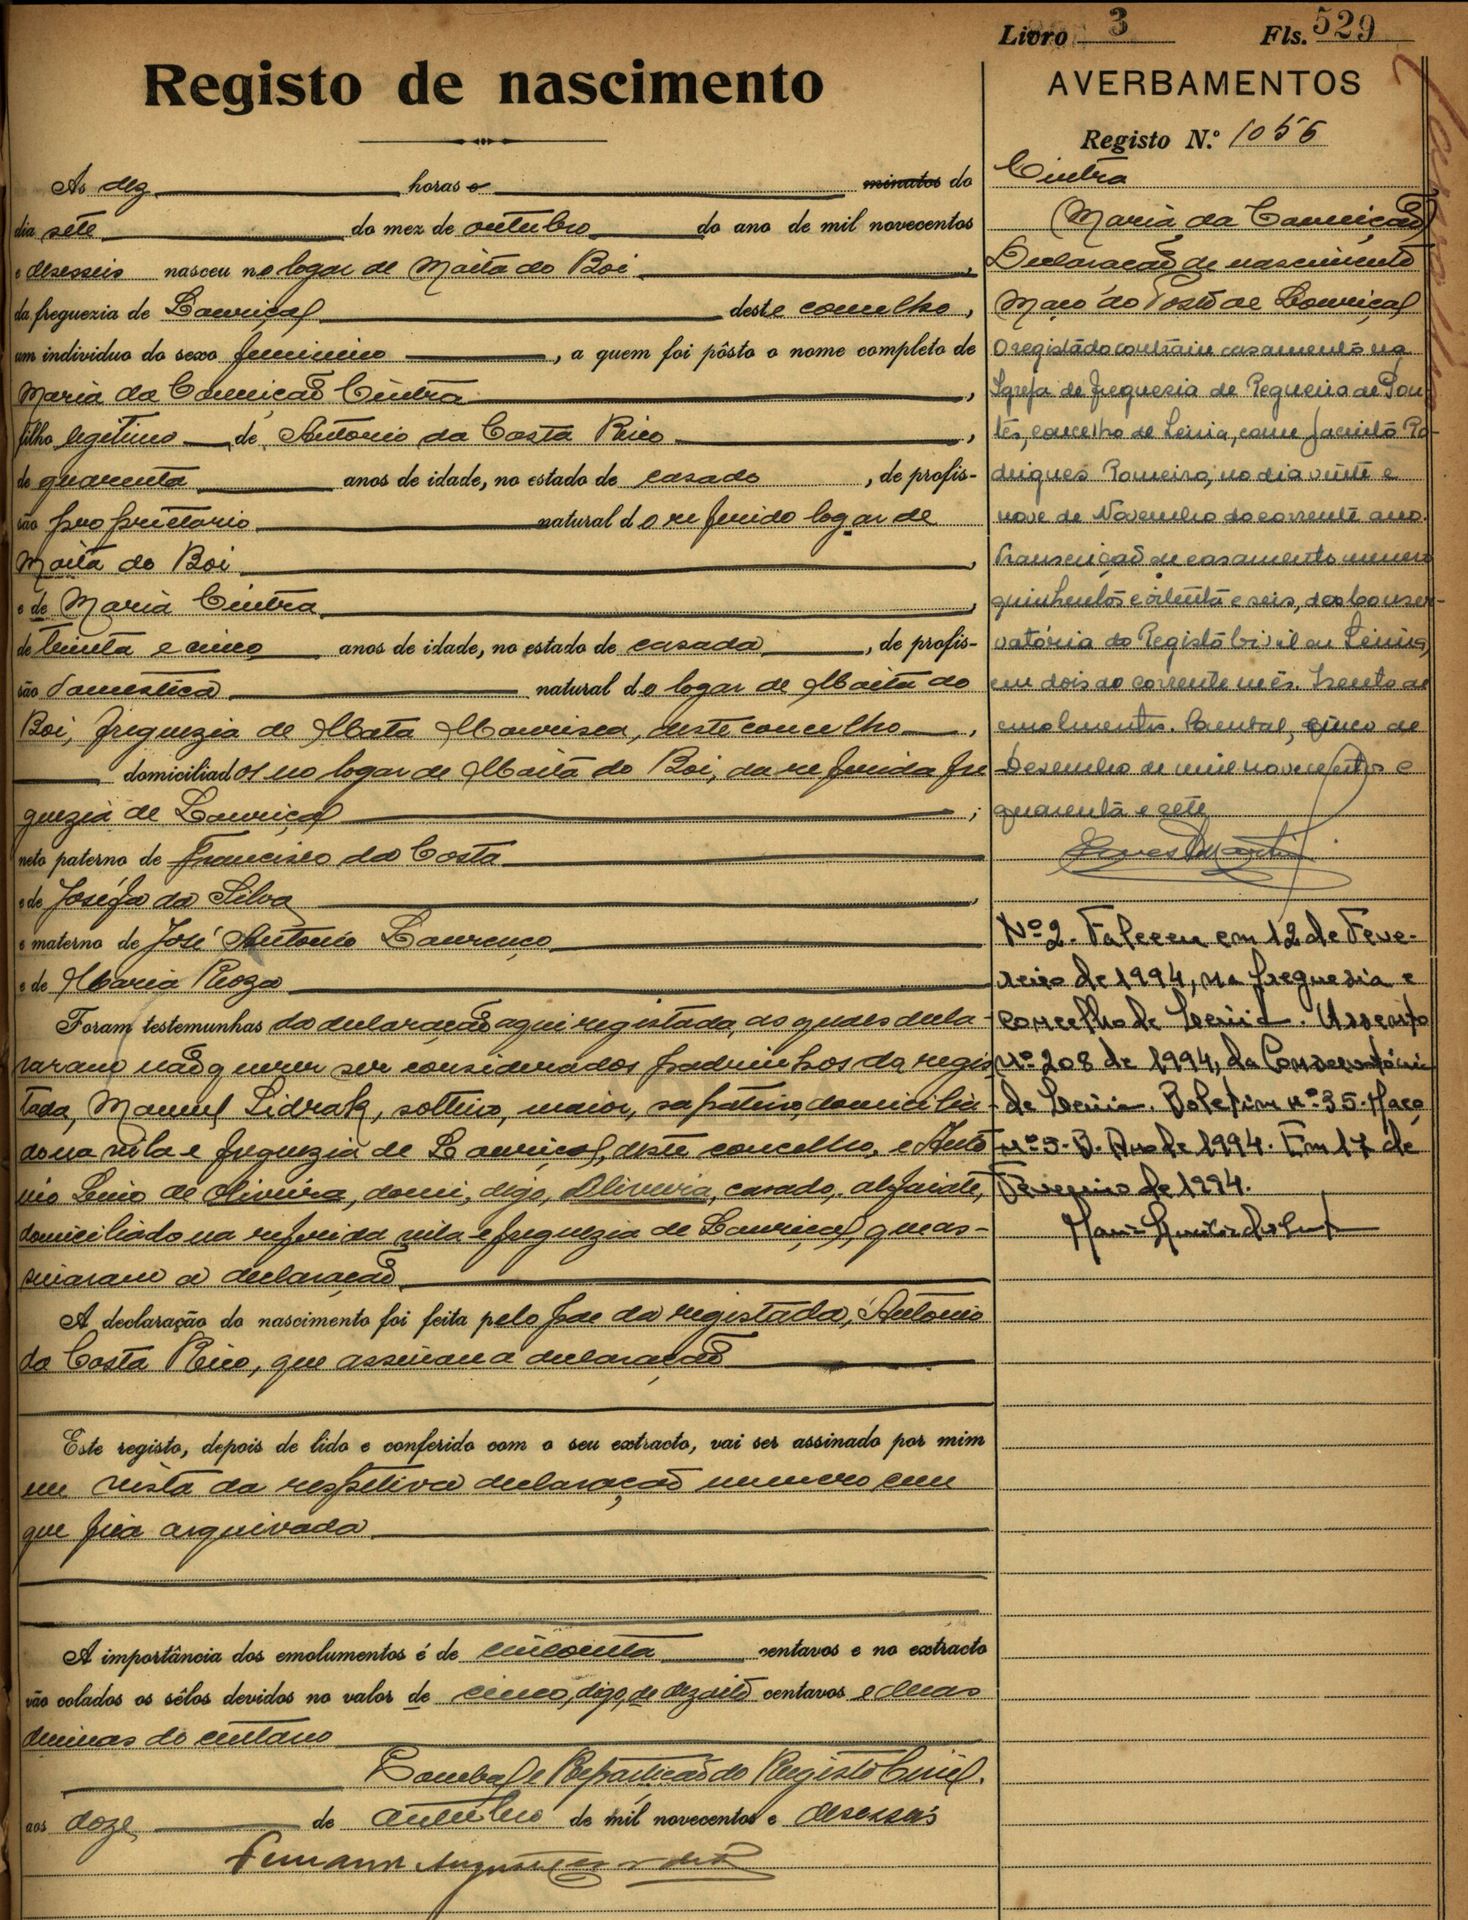 Livro 3 Fls. 529
Registo de nascimento
As dez horas e minutos do
dia sete do mez de outubro do ano de mil novecentos
e desesseis nasceu no logar de Moita do Boi,
da freguezia de Louriçal deste concelho,
um individuo do sexo feminino, a quem foi pôsto o nome completo de
Maria da Conceição Cintra,
filho legitimo de Antonio da Costa Rico,
de quarenta anos de idade, no estado de casado, de profis-
são proprietario natural do referido logar de
Moita do Boi,
e de Maria Cintra,
de trinta e cinco anos de idade, no estado de casada, de profis-
são domestica natural do logar de Moita do
Boi, freguezia de Mata Mourisca, deste concelho,
domiciliados no logar de Moita do Boi, da referida fre
guezia de Louriçal;
neto paterno de Francisco da Costa
e de Joséfa da Silva,
e materno de José Antonio Lourenço
e de Maria Roza
Foram testemunhas da declaração aqui registada, as quaes decla-
raram não querer ser considerados padrinhos da regis
tada, Manuel Sidrak, solteiro, maior, sapateiro, domicilia-
do na vila e freguezia de Louriçal, deste concelho, e Anto
nio de Oliveira, domi, digo, Oliveira, casado, alfaiate,
domiciliado na referida vila e freguezia de Louriçal, que as-
sinaram a declaração
A declaração do nascimento foi feita pelo pae da registada, Antonio
da Costa Rico, que assinou a declaração
Este registo, depois de lido e conferido com o seu extracto, vai ser assinado por mim
em vista da respetiva declaração numero um
que fica arquivada
A importância dos emolumentos é de cincoenta centavos e no extracto
vão colados os sêlos devidos no valor de cinco, digo, de dezoito centavos e duas
decimas do centavo
Pombal e Repartição do Registo Civil,
aos doze de outubro de mil novecentos e desesseis
AVERBAMENTOS
Registo N.º 1056
Cintra
(Maria da Conceição)
Declaração de nascimento
Maço do Posto de Louriçal
O registado contraiu casamento na
Igreja de freguesia de Regueira de Pon-
tes, concelho de Leiria, com Jacinto Ro-
drigues Pomeiro, no dia vinte e
nove de Novembro do corrente ano.
Transcrição de casamento numero
quinhentos e oitenta e seis, da Conser-
vatória do Registo Civil de Leiria,
em dois do corrente mês. Isento de
emolumentos. Pombal, cinco de
Desembro de mil novecentos e
quarenta e sete
Nº 2. Faleceu em 12 de Feve-
reiro de 1994, na freguesia e
concelho de Leiria. Assento
nº 208 de 1994, da Conservatória
de Leiria. Boletim nº 35. Maço
nº 5-B. Ano de 1994. Em 17 de
Fevereiro de 1994.